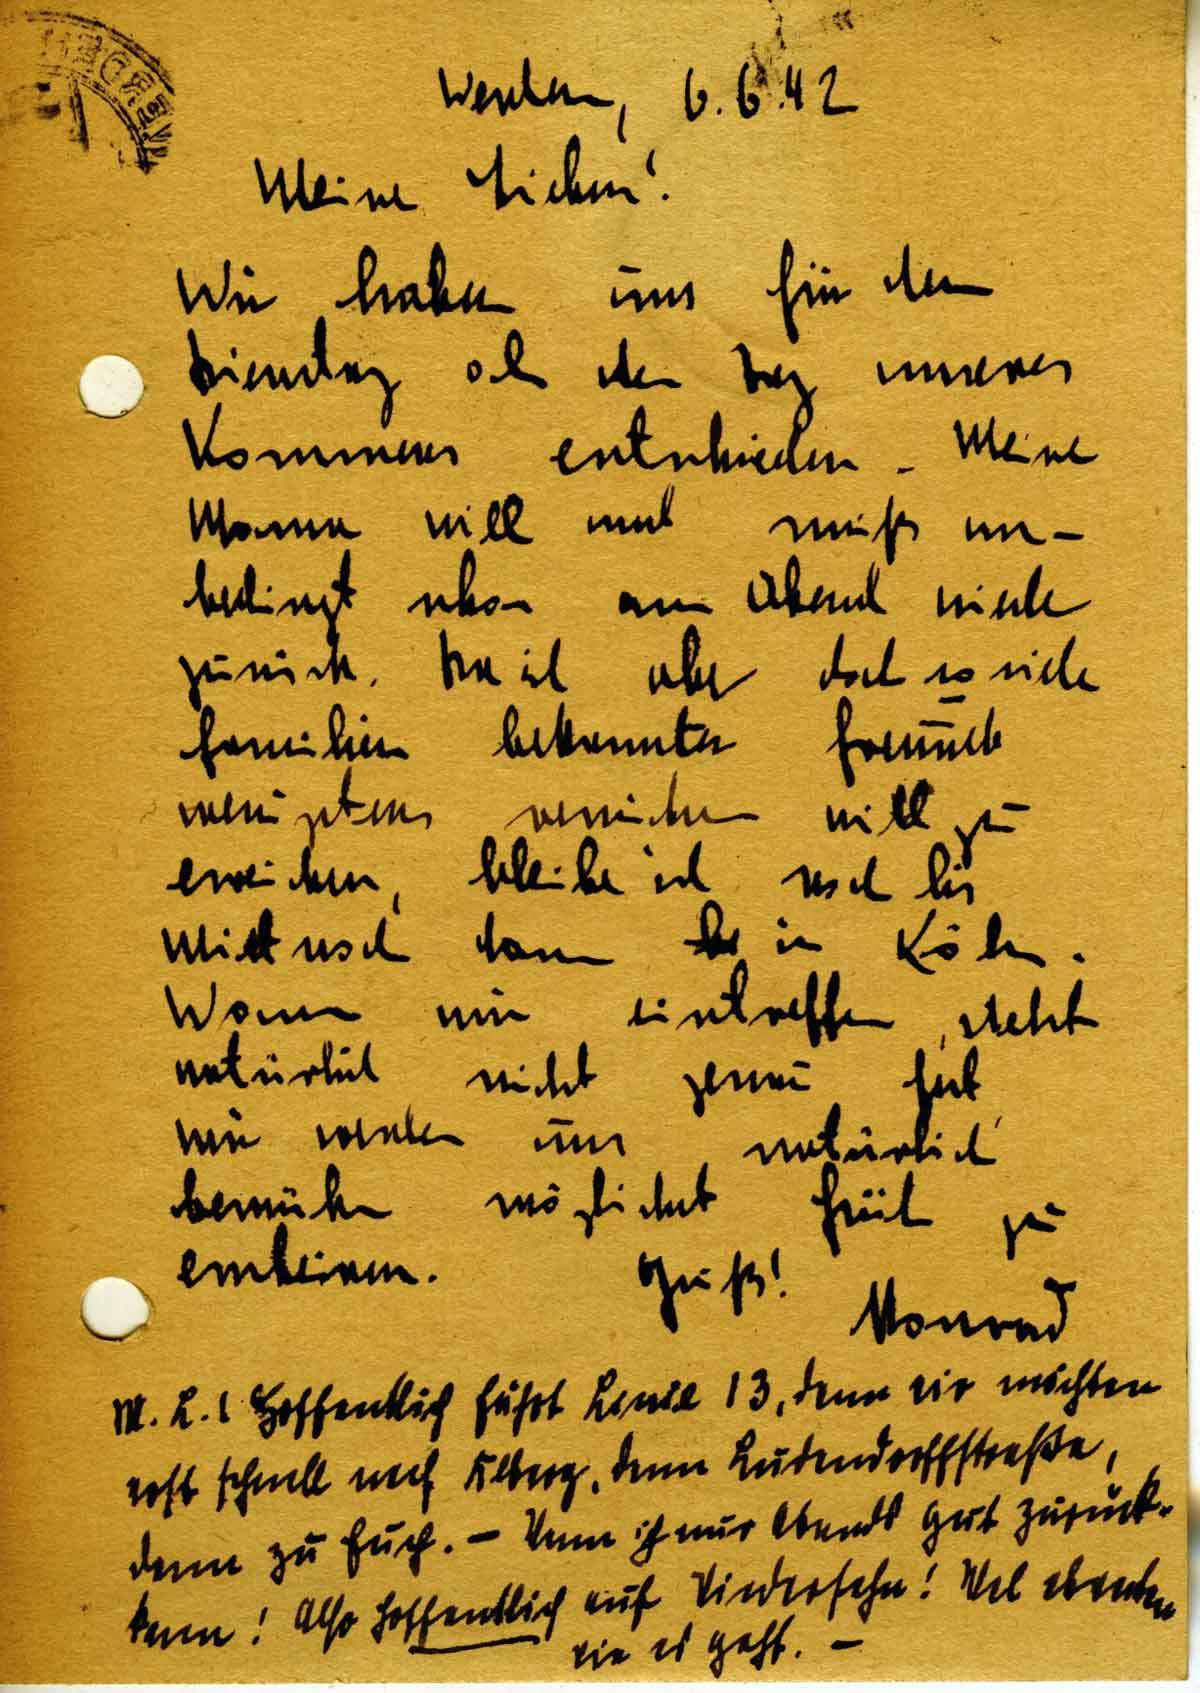 WERDEN
Werden, 6.6.42
Meine Lieben!
Wir haben uns für den
Dienstag als den Tag unseres
Kommens entschieden. Meine
Mama will und muß un-
bedingt schon am Abend wieder
zurück. Da ich aber doch so viele
Familien bekannter Freunde
wenigstens versuchen will zu
erreichen, bleibe ich noch bis
Mittwoch dann in Köln.
Wann wir eintreffen, steht
natürlich nicht genau fest,
wir werden uns natürlich
bemühen möglichst früh zu
erscheinen. Gruß!
Konrad
M. L.! Hoffentlich fährt Linie 13, denn wir möchten
erst schnell nach Klberg, dann Ludendorffstraße,
dann zu Euch. – Wenn ich nur Abends gut zurück-
kann! Also hoffentlich auf Wiedersehn! Mal abwarten
wie es geht. –